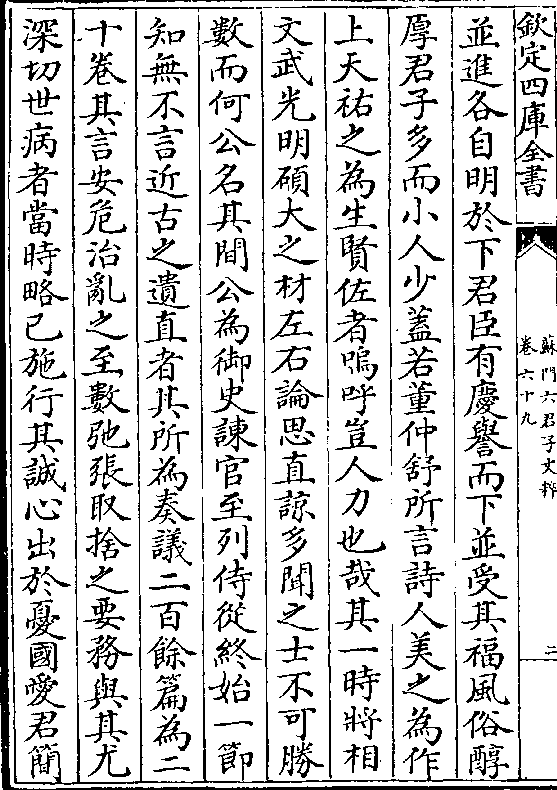 欽定四庫全書
蘇門六君子文粹
卷六十九
二
並進各自明於下君臣有慶譽而下並受其福風俗醇
厚君子多而小人少蓋若董仲舒所言詩人美之為作
上天祐之為生賢佐者嗚呼豈人力也哉其一時將相
文武光明碩大之材左右論思直諒多聞之士不可勝
數而何公名其間公為御史諫官至列侍從終始一節
知無不言近古之遺直者其所為奏議二百餘篇為二
十卷其言安危治亂之至數弛張取捨之要務與其尤
深切世病者當時略已施行其誠心出於憂國愛君簡